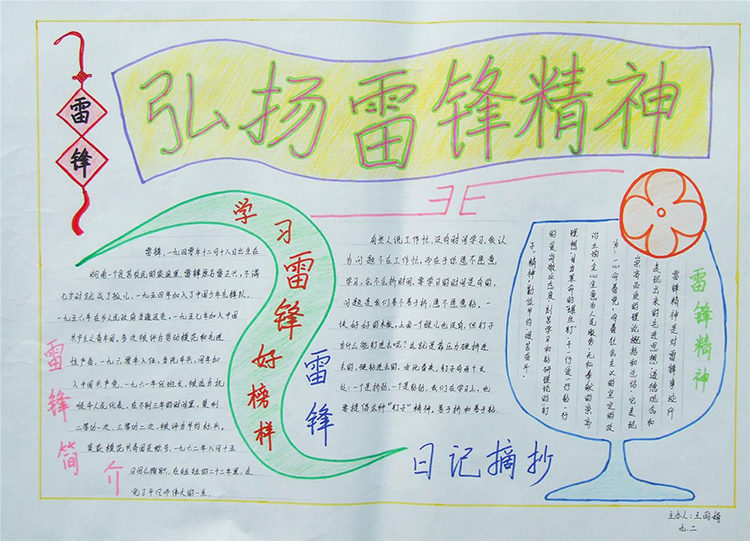 弘扬雷锋精神
雷锋
学习雷锋好榜样
雷锋简介
雷锋，一九四零年十二月十八日出生在
湖南一个贫苦农民的家庭里，雷锋原名雷正兴，不满
七岁时就成了孤儿。一九五四年加入了中国少年先锋队，
一九五六年在乡人民政府当通讯员。一九五七年加入中国
共产主义青年团，多次被评为劳动模范和先进
生产者。一九六零年入伍，当汽车兵，同年加
入中国共产党。一九六一年任班长，被选为抚
顺市人民代表。在不到三年的时间里，荣
二等功一次、三等功二次，被评为节约标兵，
荣获模范共青团员称号。一九六二年八月十五
日因公殉职，在短短的二十二年里，走
完了平凡而伟大的一生。
雷锋
日记摘抄
有些人说工作忙，没有时间学习，我认
为问题不在工作忙，而在于你愿不愿意
学习，会不会挤时间，要学习的时间是有的，
问题是我们善不善于挤，愿不愿意钻。一
块好好的木板，上面一个眼儿也没有，但钉子
为什么能钉进去呢？这就是靠压力硬挤进
去的，硬钻进去的。由此看来，钉子有两个长
处：一个是挤劲，一个是钻劲。我们在学习上，也
要提倡这种"钉子"精神，善于挤和善于钻。
雷锋精神
雷锋精神是对雷锋事迹所
表现出来的先进思想、道德观念和
崇高品质的理论概括和总结，它表现
为：一心向着党，向着社会主义的坚定的政
治立场，全心全意为人民服务、无私奉献的崇高
理想，自觉革命的螺丝钉，干一行爱一行钻一行
的爱岗敬业态度，刻苦学习和钻研理论的钉
子精神，勤俭节约
主办人：王雨
九.二